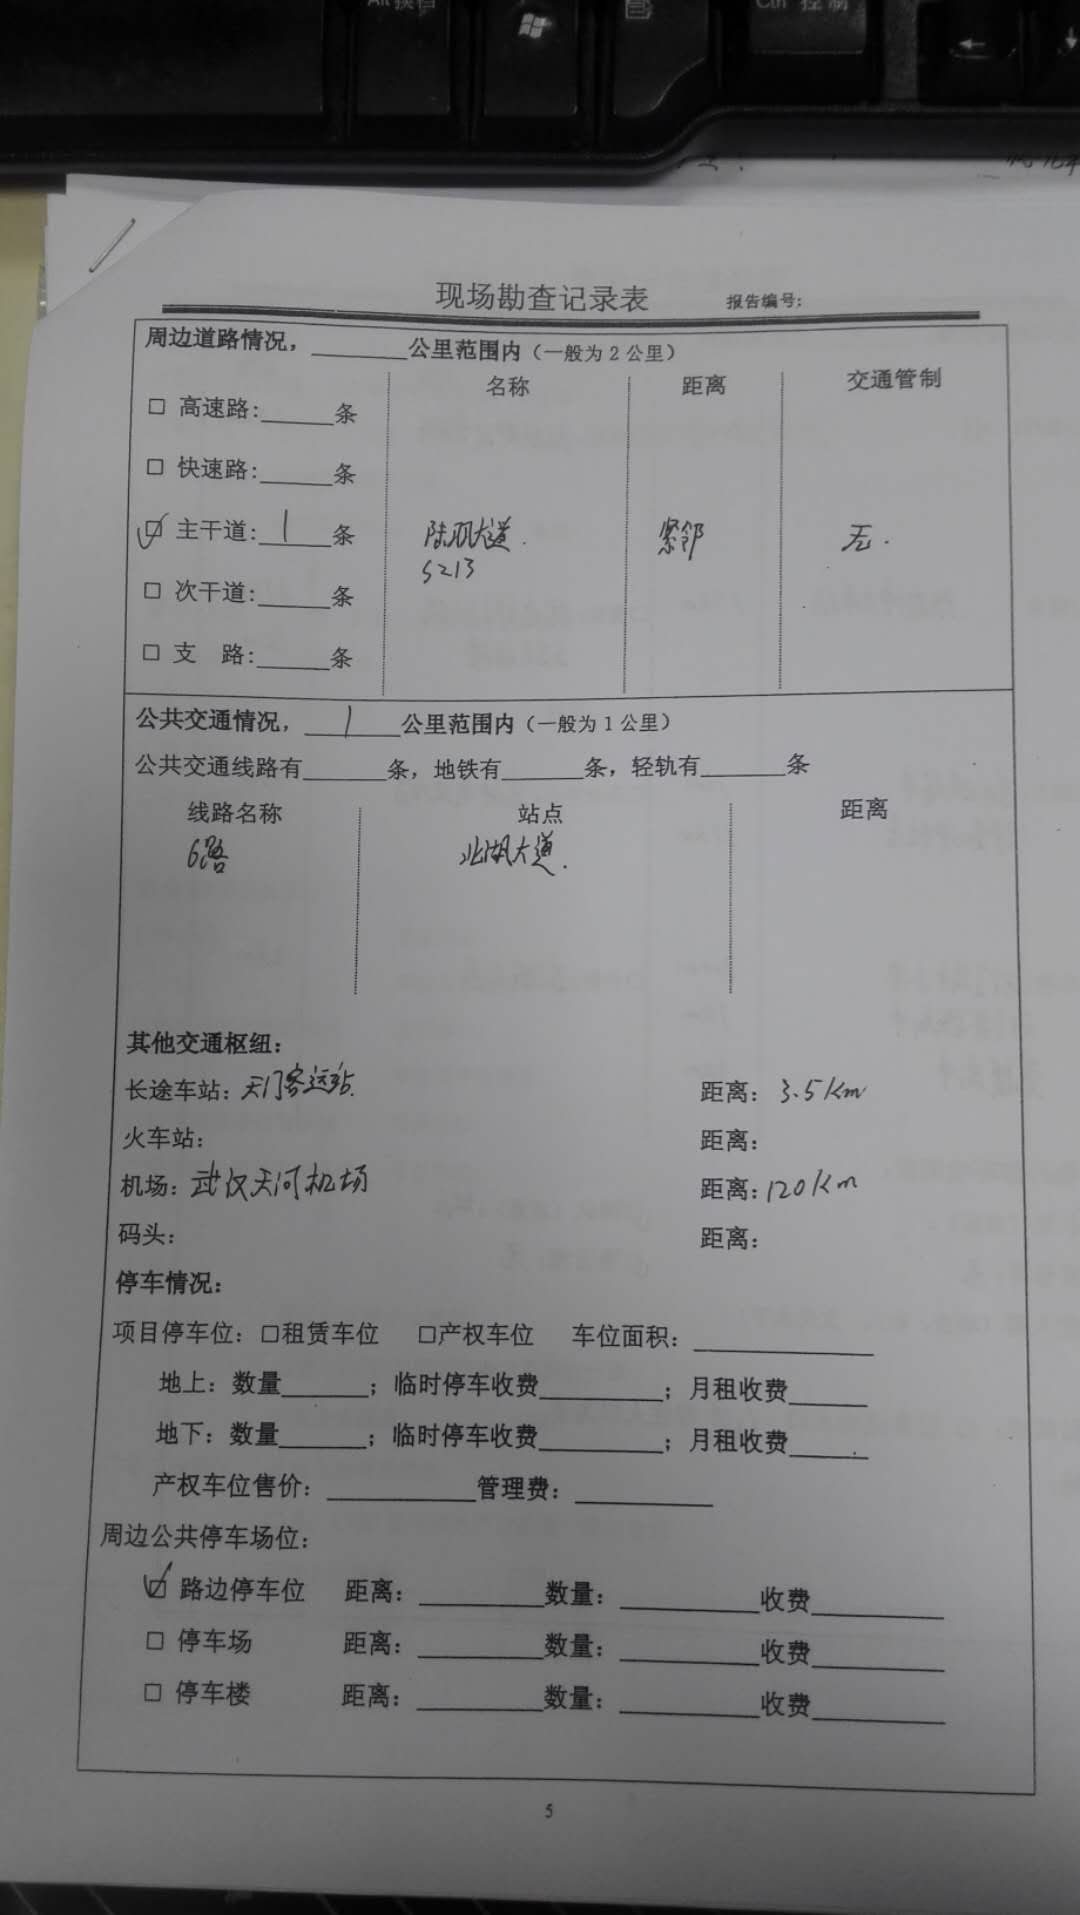 Alt 换档
Ctrl 控制
现场勘查记录表 报告编号:
周边道路情况,______公里范围内（一般为 2 公里）
名称 距离 交通管制
□ 高速路:_____条
□ 快速路:_____条
☑ 主干道:__1__条 陆羽大道. 紧邻 无.
S213
□ 次干道:_____条
□ 支 路:_____条
公共交通情况,__1__公里范围内（一般为 1 公里）
公共交通线路有______条，地铁有______条，轻轨有______条
线路名称 站点 距离
6路 北湖大道.
其他交通枢纽：
长途车站：天门客运站. 距离：3.5Km
火车站： 距离：
机场：武汉天河机场 距离：120Km
码头： 距离：
停车情况：
项目停车位：□租赁车位 □产权车位 车位面积：__________
地上：数量______；临时停车收费________；月租收费_____
地下：数量______；临时停车收费________；月租收费_____
产权车位售价：__________管理费：__________
周边公共停车场位：
☑ 路边停车位 距离：________数量：_________收费_________
□ 停车场 距离：________数量：_________收费_________
□ 停车楼 距离：________数量：_________收费_________
5